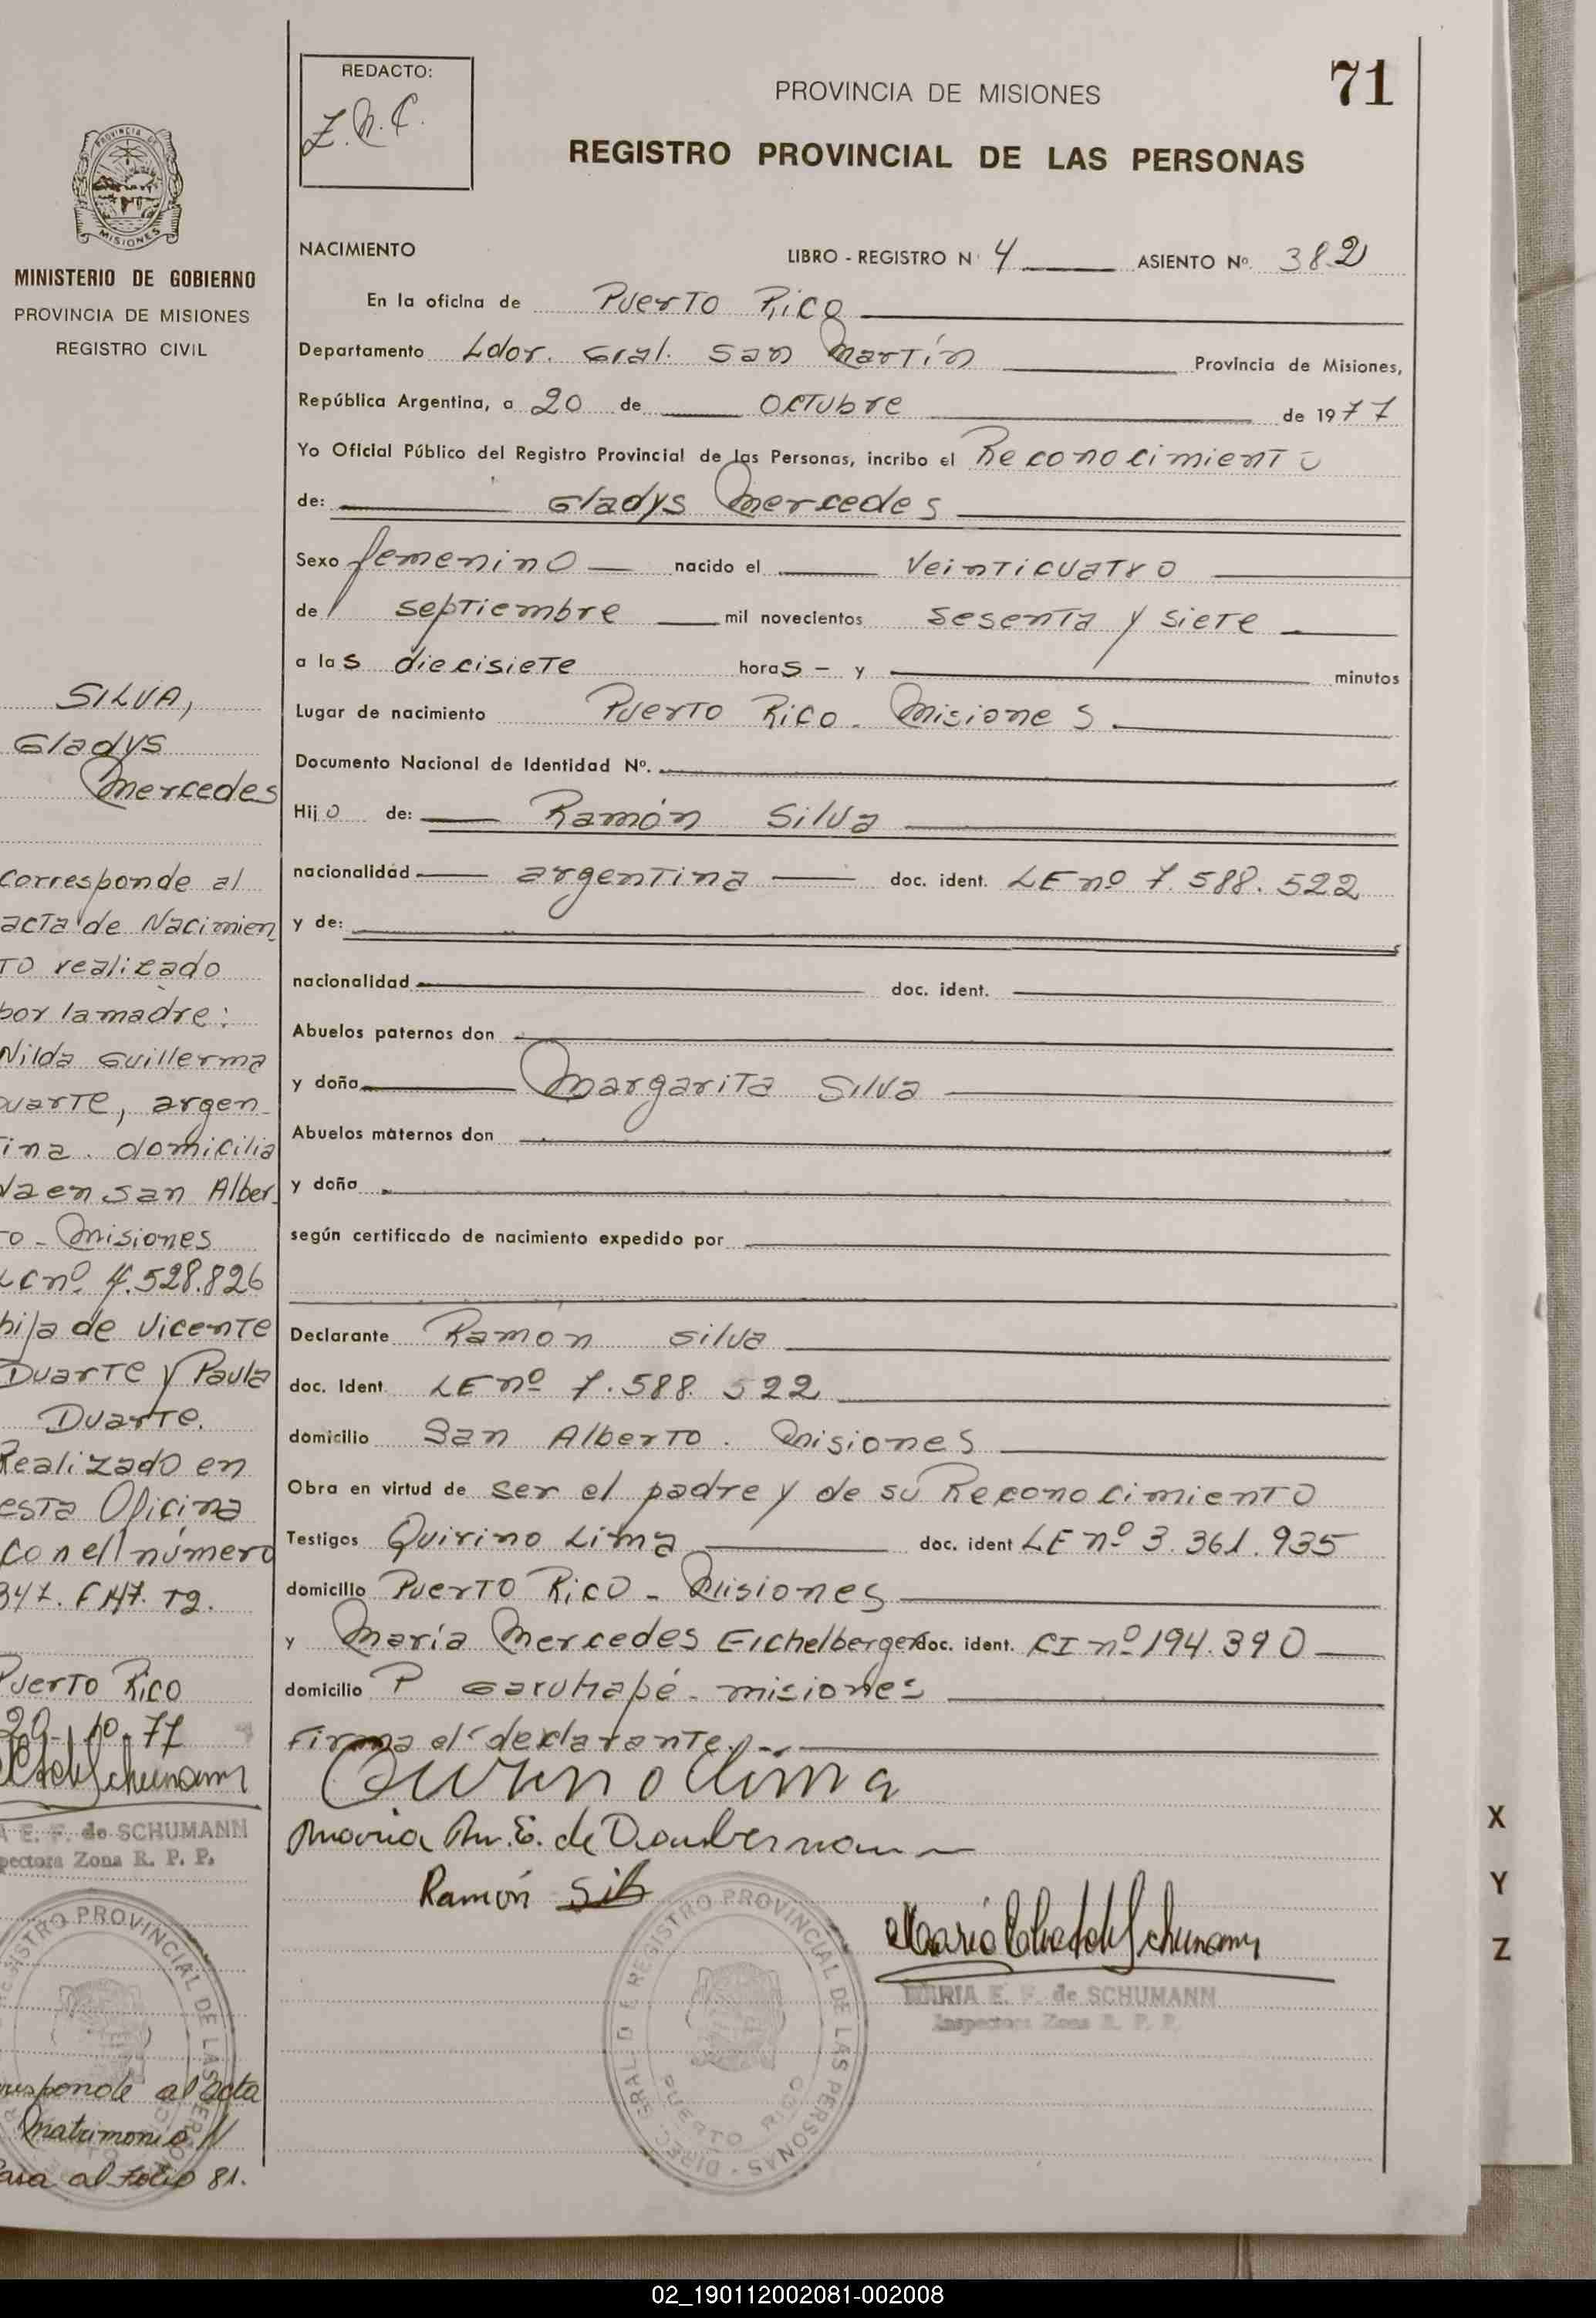 MINISTERIO DE GOBIERNO
PROVINCIA DE MISIONES
REGISTRO CIVIL
SILVA,
Gladys
Mercedes
corresponde al
acta de Nacimien
TO realizado
por la madre:
Nilda Guillerma
uarte, argen
ina. domicilia
da en san Alber
to - Misiones
LC nº 4.528.826
hija de Vicente
Duarte y Paula
Duarte.
Realizado en
esta Oficina
con el número
347. F 147. T2.
Puerto Rico
20-10-77
A E. F. de SCHUMANN
pectora Zona R. P. P.
responde al acta
Matrimonio N
asa al Folio 81.
REDACTO:
Z.R.C.
71
PROVINCIA DE MISIONES
REGISTRO PROVINCIAL DE LAS PERSONAS
NACIMIENTO LIBRO - REGISTRO N 4 ASIENTO Nº 382
En la oficina de Puerto Rico
Departamento Ldor. Gral. San Martín Provincia de Misiones,
República Argentina, a 20 de Octubre de 1977
Yo Oficial Público del Registro Provincial de las Personas, incribo el Reconocimiento
de: Gladys Mercedes
Sexo femenino nacido el Veinticuatro
de septiembre mil novecientos sesenta y siete
a las diecisiete horas - y minutos
Lugar de nacimiento Puerto Rico - Misiones
Documento Nacional de Identidad Nº.
Hijo de: Ramón Silva
nacionalidad argentina doc. ident. LE nº 7.588.522
y de:
nacionalidad doc. ident.
Abuelos paternos don
y doña Margarita Silva
Abuelos maternos don
y doña
según certificado de nacimiento expedido por
Declarante Ramon Silva
doc. Ident LE nº 7.588.522
domicilio San Alberto. Misiones
Obra en virtud de ser el padre y de su Reconocimiento
Testigos Quirino Lima doc. ident LE nº 3.361.935
domicilio Puerto Rico - Misiones
y María Mercedes Eichelberger doc. ident. CI nº 194.390
domicilio P Garuhapé - misiones
Firma el declarante.
Quirino Lima
Maria M. E. de Daubermann
Ramón Silva
MARIA E. F. de SCHUMANN
Inspectora Zona R. P. P.
DIREC. GRAL. D E REGISTRO PROVINCIAL DE LAS PERSONAS
PUERTO RICO
X
Y
Z
02_190112002081-002008